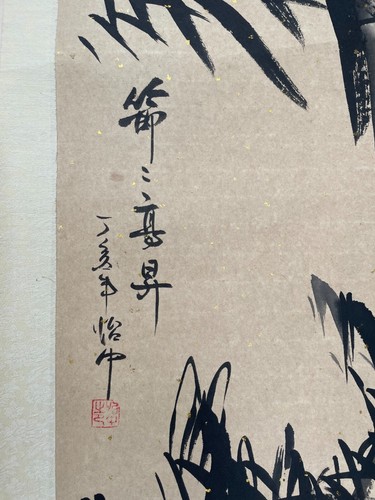 節〻高昇
丁亥年怡中